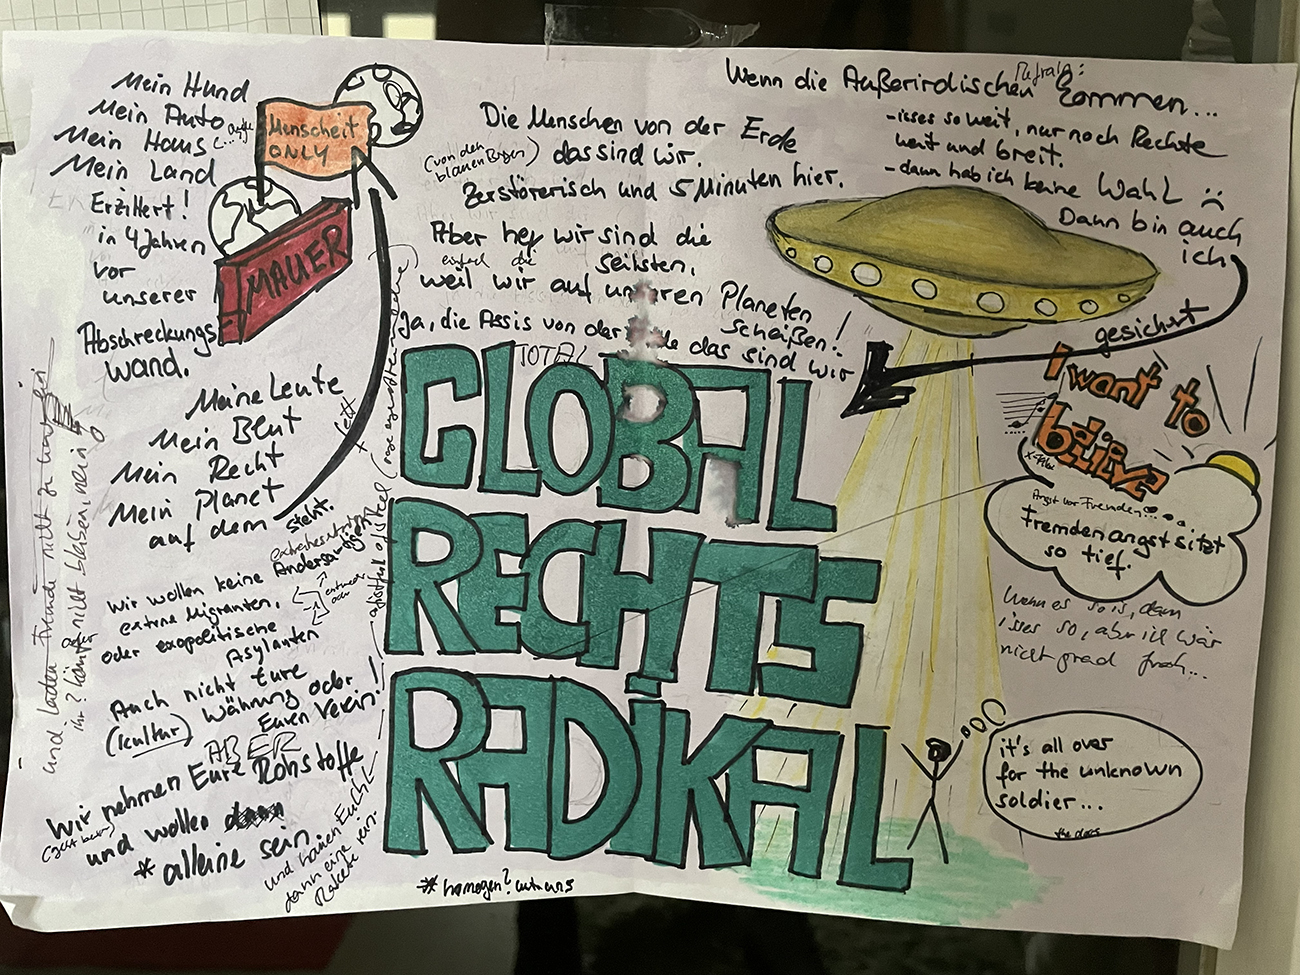 Mein Hund
Mein Auto
Mein Haus
Mein Land
Erzittert!
in 4 Jahren
vor
unserer
Abschreckungs
wand.
Menscheit
ONLY
MAUER
Meine Leute
Mein Blut
Mein Recht
Mein Planet
auf dem
steht.
Wir wollen keine Andersartigen
extreme Migranten,
entweder
oder
oder exopolitische
Asylanten
Auch nicht Eure
(Kultur) Währung oder
Euren Verein!
ABER
Wir nehmen Eure Rohstoffe
und wollen dann
* alleine sein.
und hauen Euch
dann eine
Rakete rein.
* homogen? unter uns
und laden Fremde nicht zu
nicht blasen, nein
Die Menschen von der Erde
(von den
blauen Bergen) das sind wir.
Zerstörerisch und 5 Minuten hier.
Aber hey wir sind die
einfach die
seltsten,
weil wir auf unseren Planeten
scheißen!
Ja, die Assis von der das sind wir
TOTAL
GLOBAL
RECHTS
RADIKAL
+ fett
Refrain:
Wenn die Außerirdischen kommen...
- isses so weit, nur noch Rechte
weit und breit.
- dann hab ich keine Wahl :(
Dann bin auch
ich
gesichert
I want to
believe
X-Files
Angst vor Fremden...
Fremdenangst sitzt
so tief.
Wenn es so is, dann
isses so, aber ich wär
nicht grad froh...
it's all over
for the unknown
soldier...
the doors